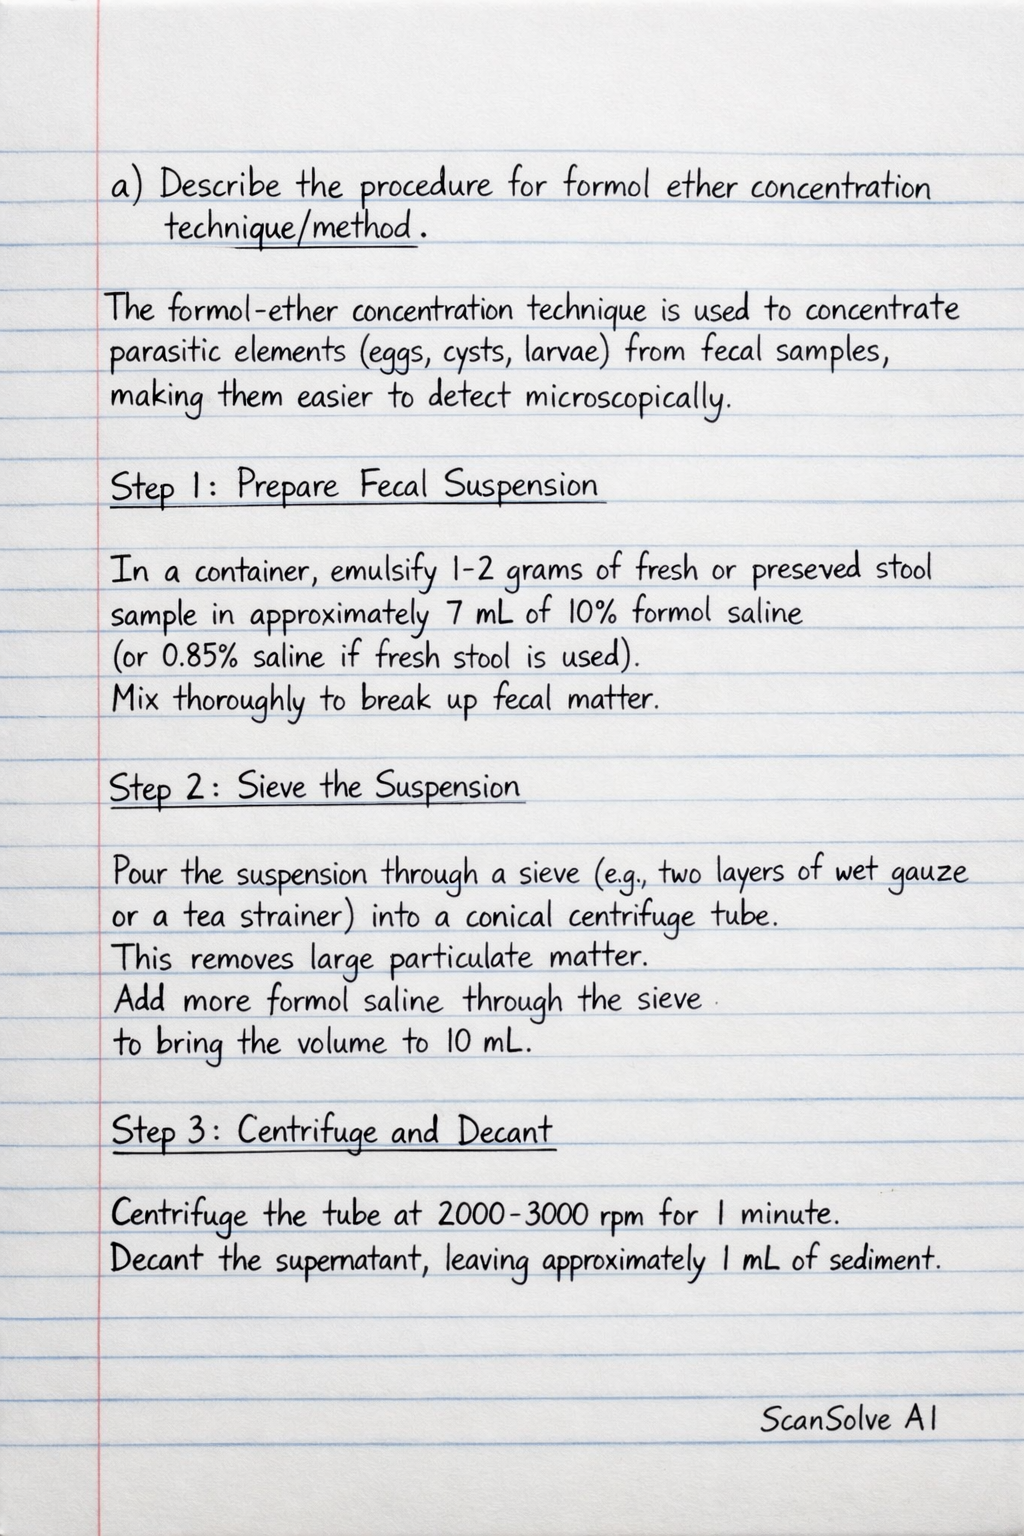 a) Describe the procedure for formol ether concentration
technique/method.
The formol-ether concentration technique is used to concentrate
parasitic elements (eggs, cysts, larvae) from fecal samples,
making them easier to detect microscopically.
Step 1: Prepare Fecal Suspension
In a container, emulsify 1-2 grams of fresh or preseved stool
sample in approximately 7 mL of 10% formol saline
(or 0.85% saline if fresh stool is used).
Mix thoroughly to break up fecal matter.
Step 2: Sieve the Suspension
Pour the suspension through a sieve (e.g., two layers of wet gauze
or a tea strainer) into a conical centrifuge tube.
This removes large particulate matter.
Add more formol saline through the sieve
to bring the volume to 10 mL.
Step 3: Centrifuge and Decant
Centrifuge the tube at 2000-3000 rpm for 1 minute.
Decant the supernatant, leaving approximately 1 mL of sediment.
ScanSolve AI